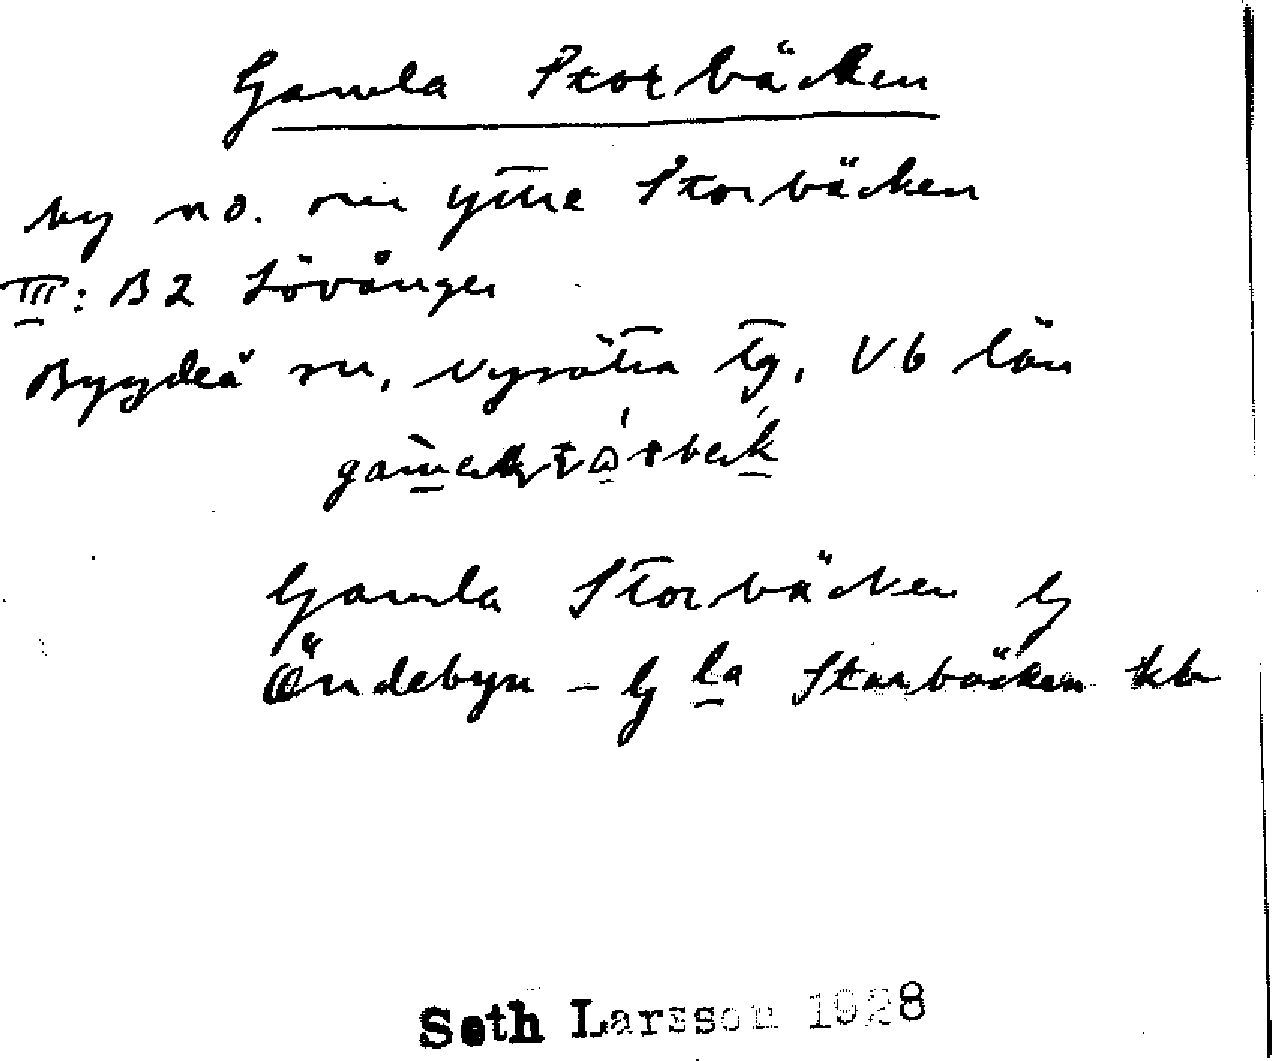 Gamla Storbäcken
by no. om Yttre Storbäcken
III: B2 Lövånger
Bygdeå sn, Nysätra tg, Vb län
Gamla Storbäcken G
Öndebyn - G la Storbäcken kb
Seth Larsson 1928